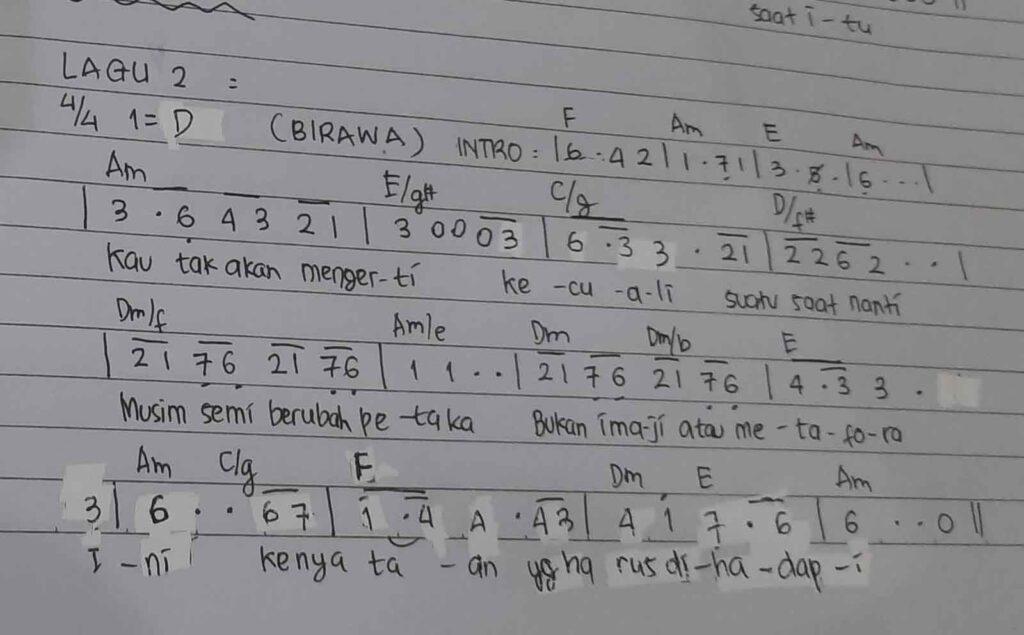 saat i-tu
LAGU 2 :
4/4 1=D (BIRAWA) INTRO : | 6 . 4 2 | 1 . 7 1 | 3 . 8 . | 6 . . . |
F Am E Am
Am E/g# C/g D/f#
| 3 . 6 4 3 2 1 | 3 0 0 0 3 | 6 . 3 3 . 2 1 | 2 2 6 2 . . |
Kau tak akan menger-ti ke-cu-a-li suatu saat nanti
Dm/f Am/e Dm Dm/b E
| 2 1 7 6 2 1 7 6 | 1 1 . . | 2 1 7 6 2 1 7 6 | 4 . 3 3 .
Musim semi berubah pe-taka Bukan ima-ji atau me-ta-fo-ra
Am C/g F Dm E Am
3 | 6 . . 6 7 | 1 . 4 4 . 4 3 | 4 1 7 . 6 | 6 . . 0 ||
I-ni kenya ta-an yg ha rus di-ha-dap-i